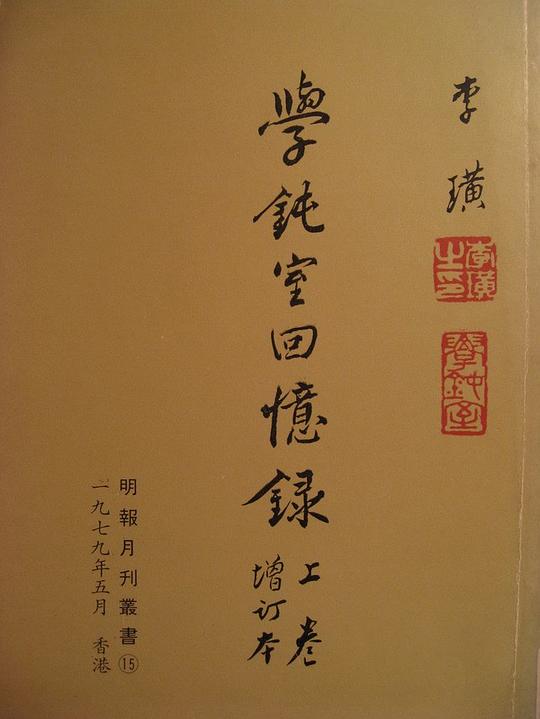 李璜
李璜之印
學鈍室
學鈍室回憶録
上卷
增订本
明報月刊叢書⑮
一九七九年五月 香港